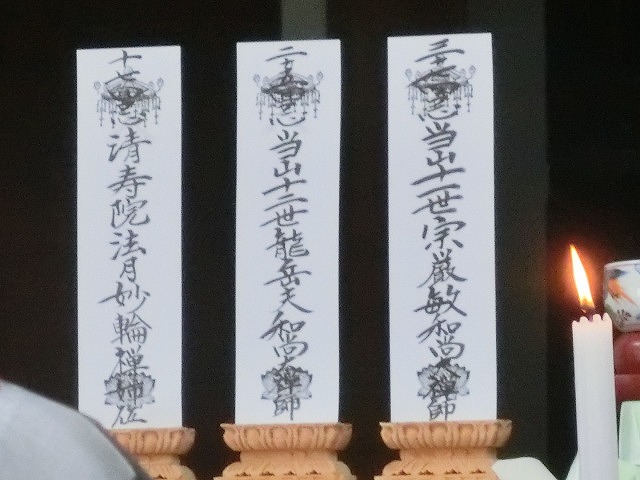 三十七回忌当山十一世宗厳敏和尚大禅師
二十五回忌当山十二世龍岳天和尚大禅師
十七回忌清寿院法月妙輪禅姉位